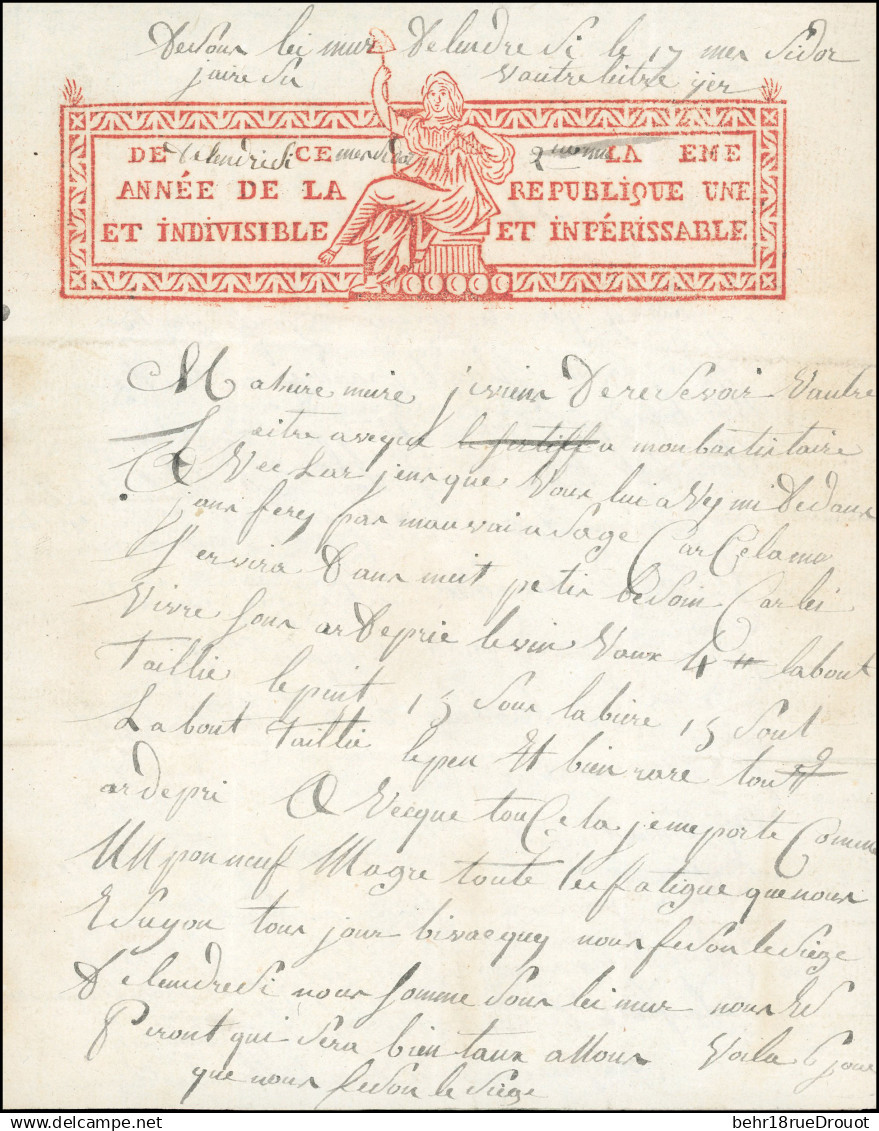 Desous lei mur Delendre Si le 17 mesidor
jaire Su vautre leitre ier
DE Delendresi CE mesidor 2 LA EME
ANNÉE DE LA REPUBLIQUE UNE
ET INDIVISIBLE ET INPÉRISSABLE
Ma hire mire je viens De resevoir Vautre
Leitre aveque a mon bastistaire
A Vec Lar jens que Vous lui aVez mi Dedans
jans ferez pas mauvai usage Car Cela me
Servira Dans meit petis besoin Car lei
Vivre sons ar De prie le vin Vaux 4 tt la bout
Taillie le pint 15 sous la biere 15 Sout
La bout Taillie le pen Et bien rare tout
ar de pri A Vecque tou Ce la je me porte Comme
UN pon neuf Magre toute les fatigue que nous
Esuyon tous jour bivacquez nous feson le sieze
Delendresi nous somme sous lei mur nous Es
Peront qui sera bien taux a Nous Voila 6 jour
que nous feson le sieze
behr18rueDrouot